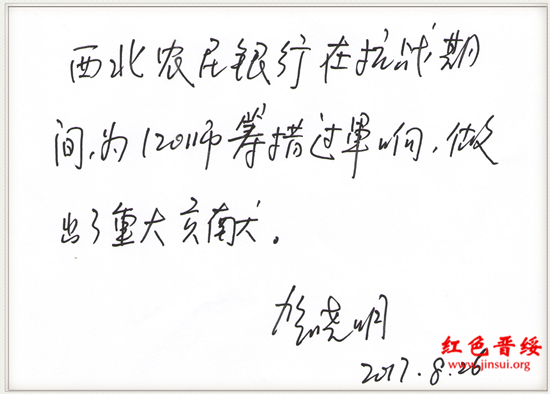 西北农民银行在抗战期
间,为120师筹措过军饷,做
出了重大贡献。
贺晓明
2017.8.26
红色晋绥
www.jinsui.org